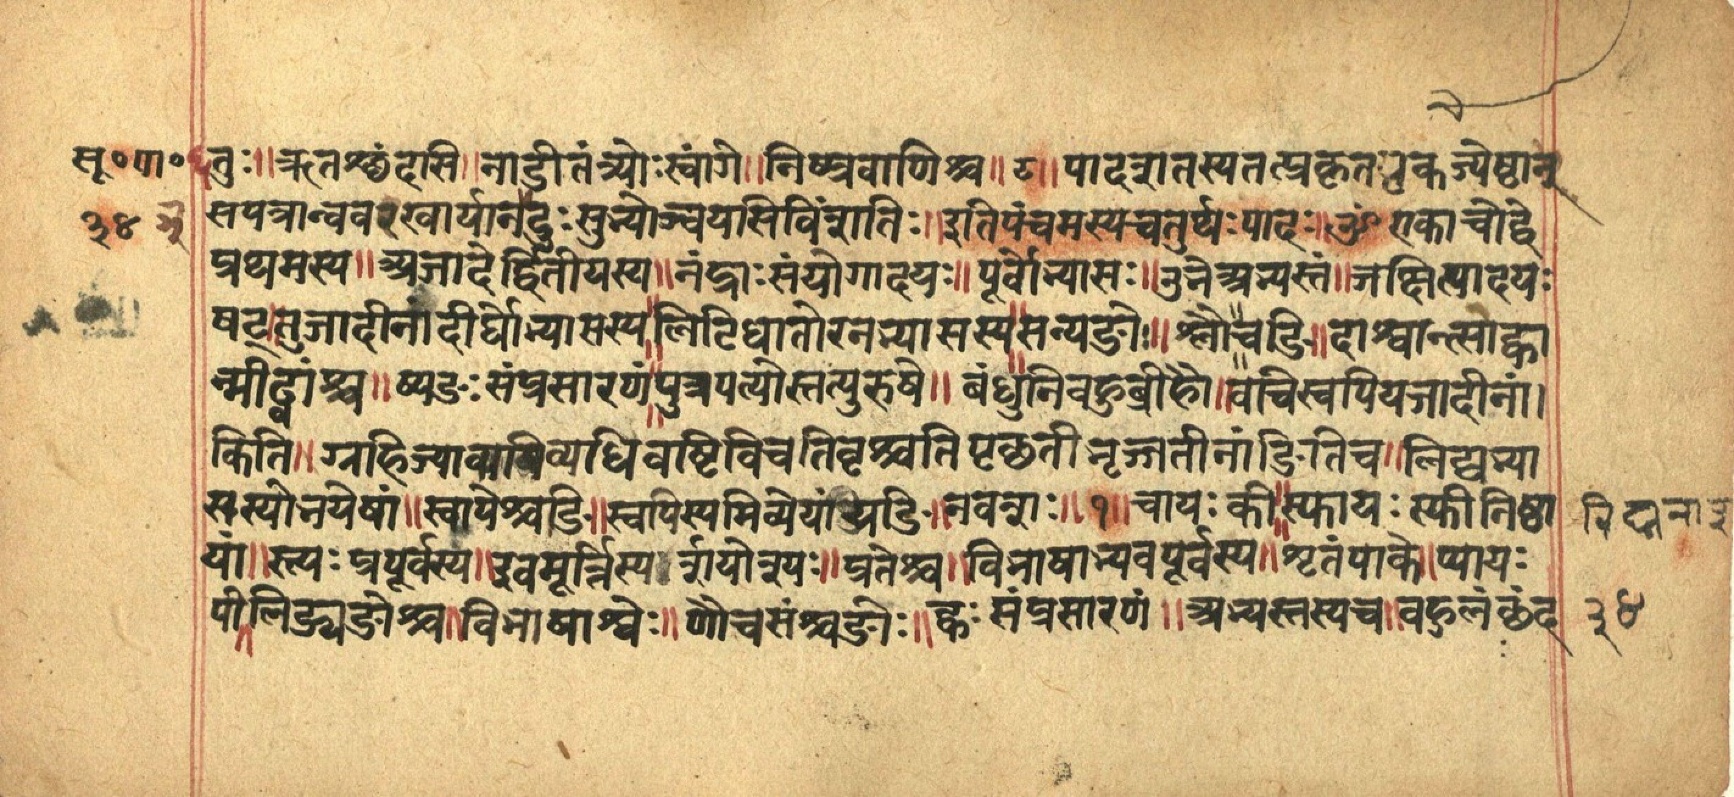 सू॰पा॰ तुः॥ ऋतश्छंदासि॥ नाडीतंत्र्योः स्वांगे॥ निष्प्रवाणिश्च॥ ८॥ पादशतस्यतत्प्रकृतवृकज्येष्ठानु
३४ सपत्रान्ववरखार्यानद्युः सुन्योञ्चयसिविंशतिः॥ इतिपंचमस्यचतुर्थः पादः॥ ॐ एकाचोद्वे
प्रथमस्य॥ अजादेर्द्वितीयस्य॥ नंद्राः संयोगादयः॥ पूर्वोभ्यासः॥ उभेअभ्यस्तं॥ जक्षित्यादयः
षट् तुजादीनांदीर्घोभ्यासस्य॥ लिटिधातोरनभ्यासस्य॥ सन्यङोः॥ श्लौ॥ चङि॥ दाश्वान्त्साह्वा
न्मीढ्वांश्च॥ ष्यङः संप्रसारणं॥ पुत्रपत्योस्तत्पुरुषे॥ बंधुनिबहुव्रीहौ॥ वचिस्वपियजादीनां।
किति॥ ग्रहिज्यावयिव्यधिवष्टिविचतिवृश्चतिपृच्छतीभृज्जतीनांङितिच॥ लिट्यभ्या
सस्योभयेषां॥ स्वापेश्चङि॥ स्वपिस्यमिव्येञांयङि॥ नवशः॥ १॥ चायः की॥ स्फायः स्फीनिष्ठा
यां॥ स्त्यः प्रपूर्वस्य॥ द्रवमूर्त्तिस्पर्शयोश्यः॥ प्रतेश्च॥ विभाषाभ्यवपूर्वस्य॥ शृतंपाके॥ प्यायः
पी॥ लिड्यङोश्च॥ विभाषाश्वेः॥ णौचसंश्चङोः॥ ह्वः संप्रसारणं॥ अभ्यस्तस्यच॥ बहुलंछंद ३४